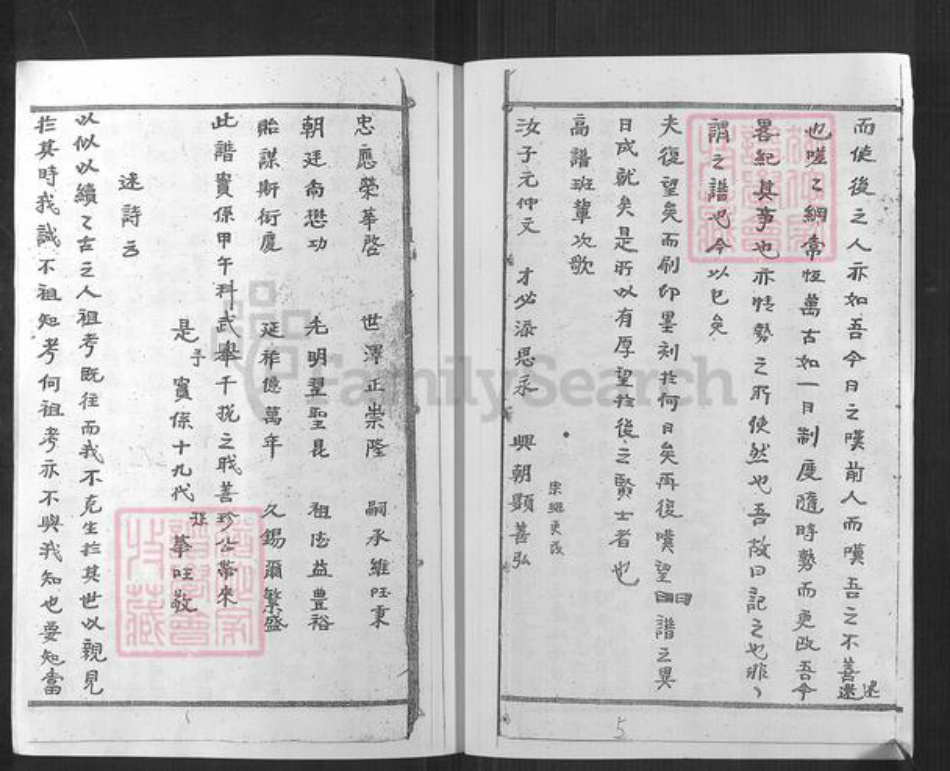 而使後之人亦如吾今日之嘆前人而嘆吾之不善述
也嗟之綱常恆萬古如一日制度隨時勢而更改吾今
畧紀其事也亦情勢之所使然也吾故曰記之也非
謂之譜也今以已矣
夫復望矣而刷印墨刻於何日矣再復嘆望譜之異
日成就矣是所以有厚望於後之賢士者也
高譜班輩次歌
汝子元仲文 才必添思永 興朝顯善弘
忠應榮華啓 世澤正崇隆 嗣承維旺秉
朝廷尚懋功 先明翌聖昆 祖德益豊裕
貽謀斯衍慶 延祚億萬年 久錫爾繁盛
此譜實係甲午科武舉千挩之職善珍公帶來
是予實係十九代 華旺敬
述詩云
以似以續之古之人祖考既往而我不克生於其世以親見
於其時我誠不祖知考何祖考亦不與我知也要知當
5
FamilySearch